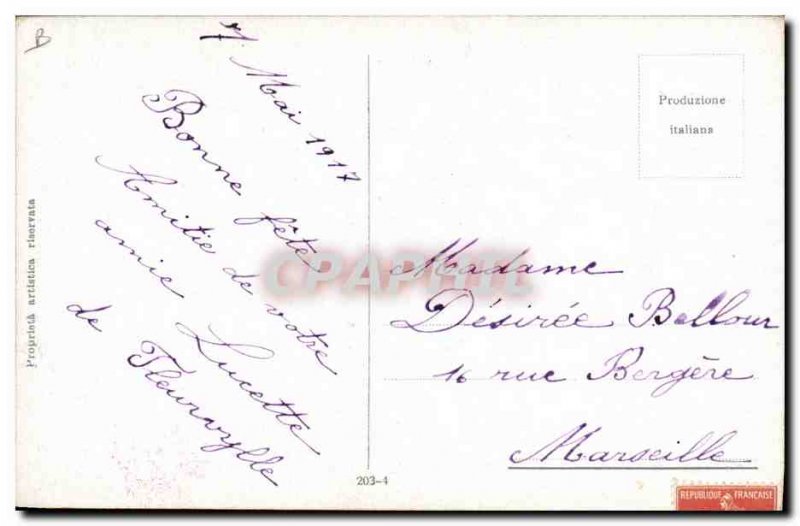 B
7 Mai 1917
Bonne fête
Amitié de votre
amie Lucette
de Fleurvylle
Proprietà artistica riservata
203-4
Produzione
italiana
Madame
Désirée Bellour
16 rue Bergère
Marseille
CPAPHIL
REPUBLIQUE FRANÇAISE